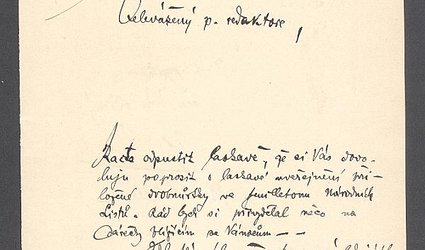 Velevážený p. redaktore,
Račte odpustit laskavě, že si Vás dovo-
luju poprosit o laskavé uveřejnění při-
ložené drobnůstky ve feuilletonu Národních
Listů. Rád bych si přivydělal něco na
dárečky blížícím se Vánocům – –